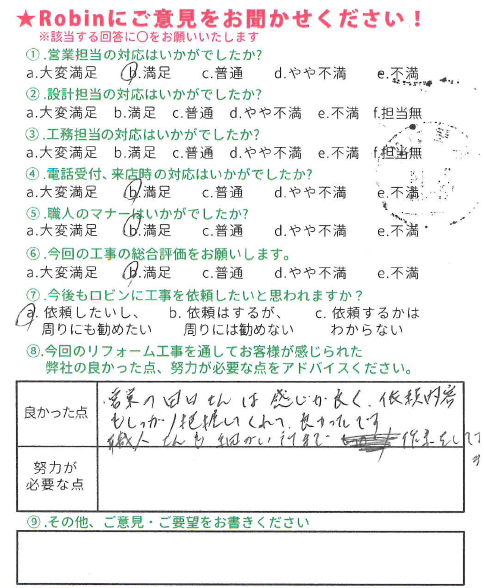 ★Robinにご意見をお聞かせください！
※該当する回答に〇をお願いいたします
①.営業担当の対応はいかがでしたか?
a.大変満足 b.満足 c.普通 d.やや不満 e.不満
②.設計担当の対応はいかがでしたか?
a.大変満足 b.満足 c.普通 d.やや不満 e.不満 f.担当無
③.工務担当の対応はいかがでしたか?
a.大変満足 b.満足 c.普通 d.やや不満 e.不満 f.担当無
④.電話受付、来店時の対応はいかがでしたか?
a.大変満足 b.満足 c.普通 d.やや不満 e.不満
⑤.職人のマナーはいかがでしたか?
a.大変満足 b.満足 c.普通 d.やや不満 e.不満
⑥.今回の工事の総合評価をお願いします。
a.大変満足 b.満足 c.普通 d.やや不満 e.不満
⑦.今後もロビンに工事を依頼したいと思われますか？
a. 依頼したいし、 b. 依頼はするが、 c. 依頼するかは
周りにも勧めたい 周りには勧めない わからない
⑧.今回のリフォーム工事を通してお客様が感じられた
弊社の良かった点、努力が必要な点をアドバイスください。
良かった点
営業の田口さんは感じが良く、依頼内容
もしっかり把握してくれて、良かったです
職人さんも細かい所まで 作業をして
努力が
必要な点
⑨.その他、ご意見・ご要望をお書きください